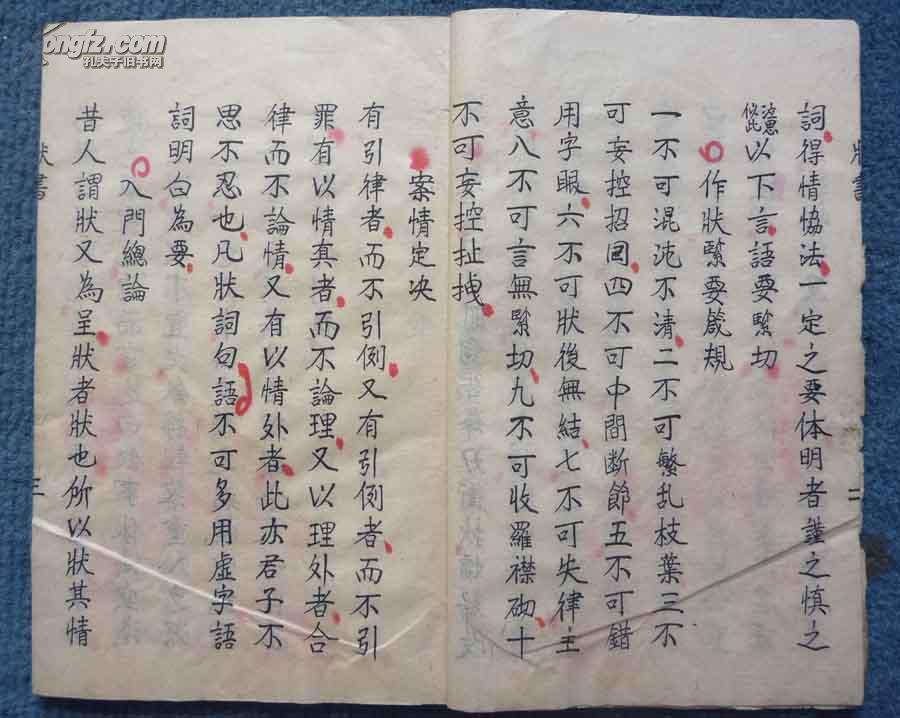 詞得情恊法一定之要体明者謹之慎之
以下言語要緊切
作狀緊要箴規
一不可混沌不清二不可繁乱枝葉三不
可妄控招回四不可中間断節五不可錯
用字眼六不可狀後無結七不可失律主
意八不可言無緊切九不可收羅襟砌十
不可妄控扯拽
案情定决
有引律者而不引例又有引例者而不引
罪有以情真者而不論理又以理外者合
律而不論情又有以情外者此亦君子不
思不忍也凡狀詞句語不可多用虚字語
詞明白為要
入門總論
昔人謂狀又為呈狀者狀也所以狀其情
狀書
二
三
kongfz.com
孔夫子旧书网